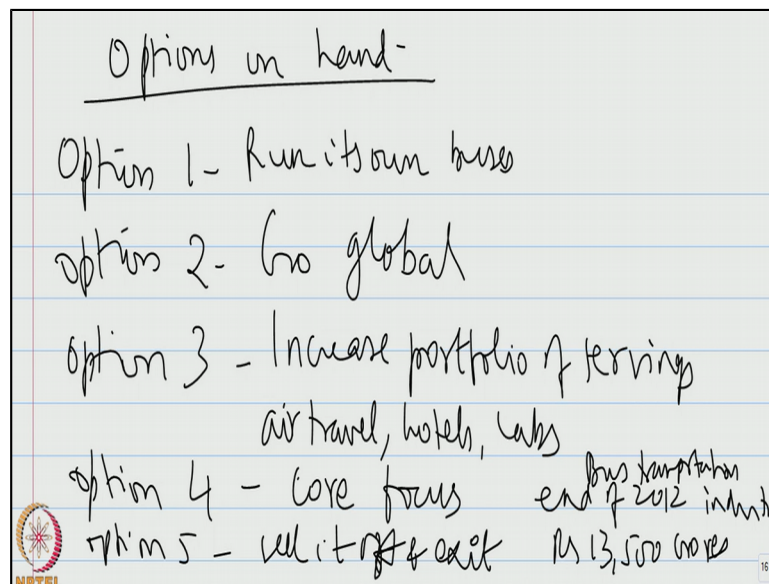 Options in hand-
Option 1 - Run its own buses
Option 2 - Go global
Option 3 - Increase portfolio of services
air travel, hotels, cabs
Option 4 - core focus
bus transportation
end of 2012 indust
Option 5 - sell it off & exit Rs 13,500 crores
NPTEL
16